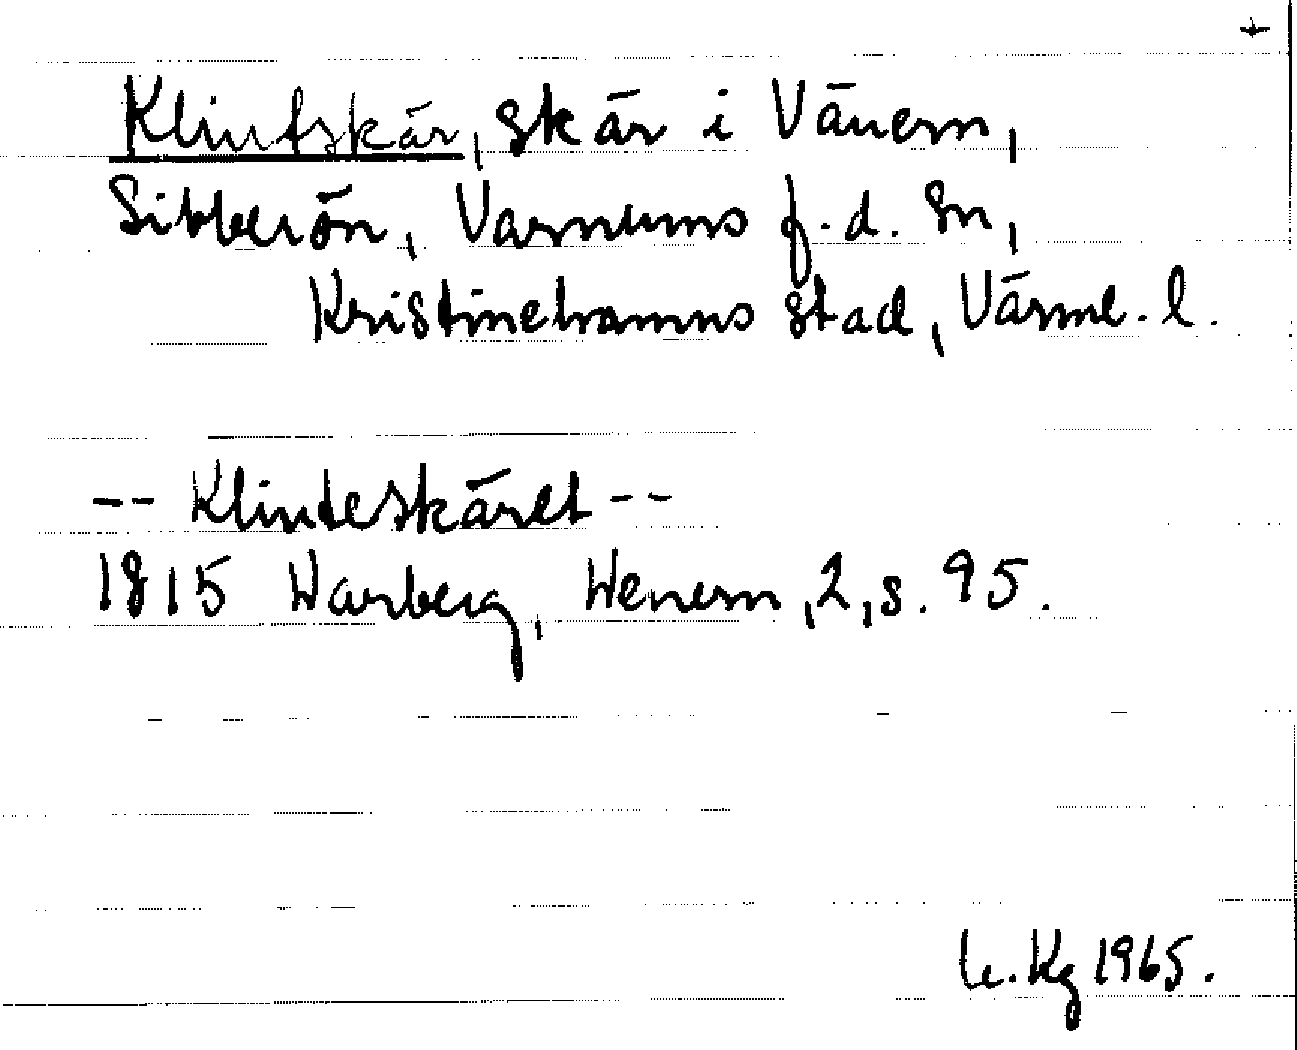 +
Klintskär, skär i Vänern,
Sibberön, Varnums f.d. sn,
Kristinehamns stad, Värml. l.
-- Klinteskäret --
1815 Warberg, Wenern, 2, s. 95.
Kg 1965.